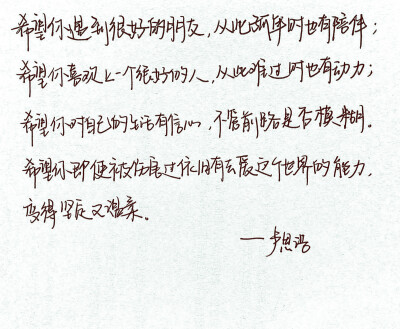 希望你遇到很好的朋友，从此孤单时也有陪伴；
希望你喜欢上一个很好的人，从此难过时也有动力；
希望你对自己的生活有信心，不管前路是否模糊。
希望你即便被伤害过依旧有去爱这个世界的能力，
变得坚定又温柔。
——卢思浩